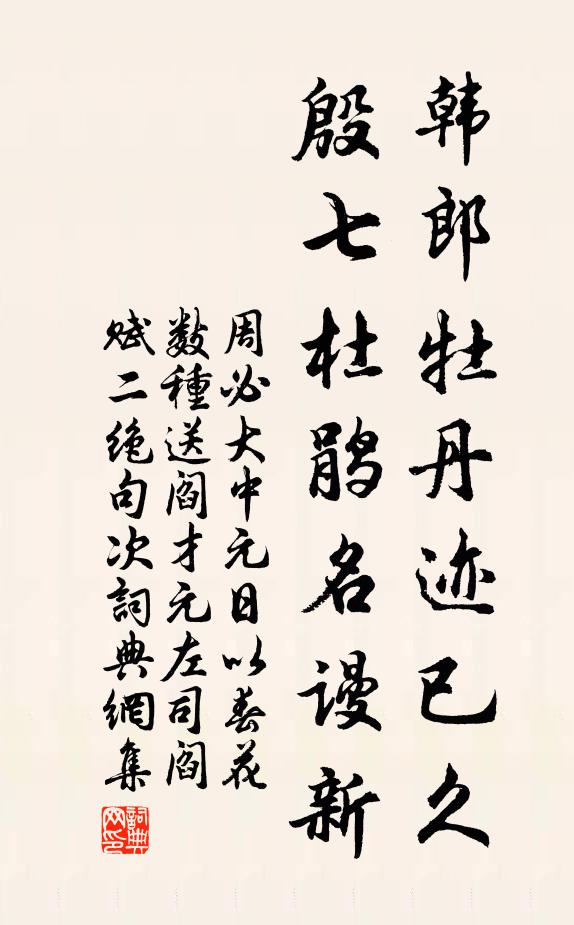 韩郎牡丹迹已久
殷七杜鹃名谩新
周必大中元日以春花
数種送阎才元左司阎
赋二绝句次詞典網集
詞典網印